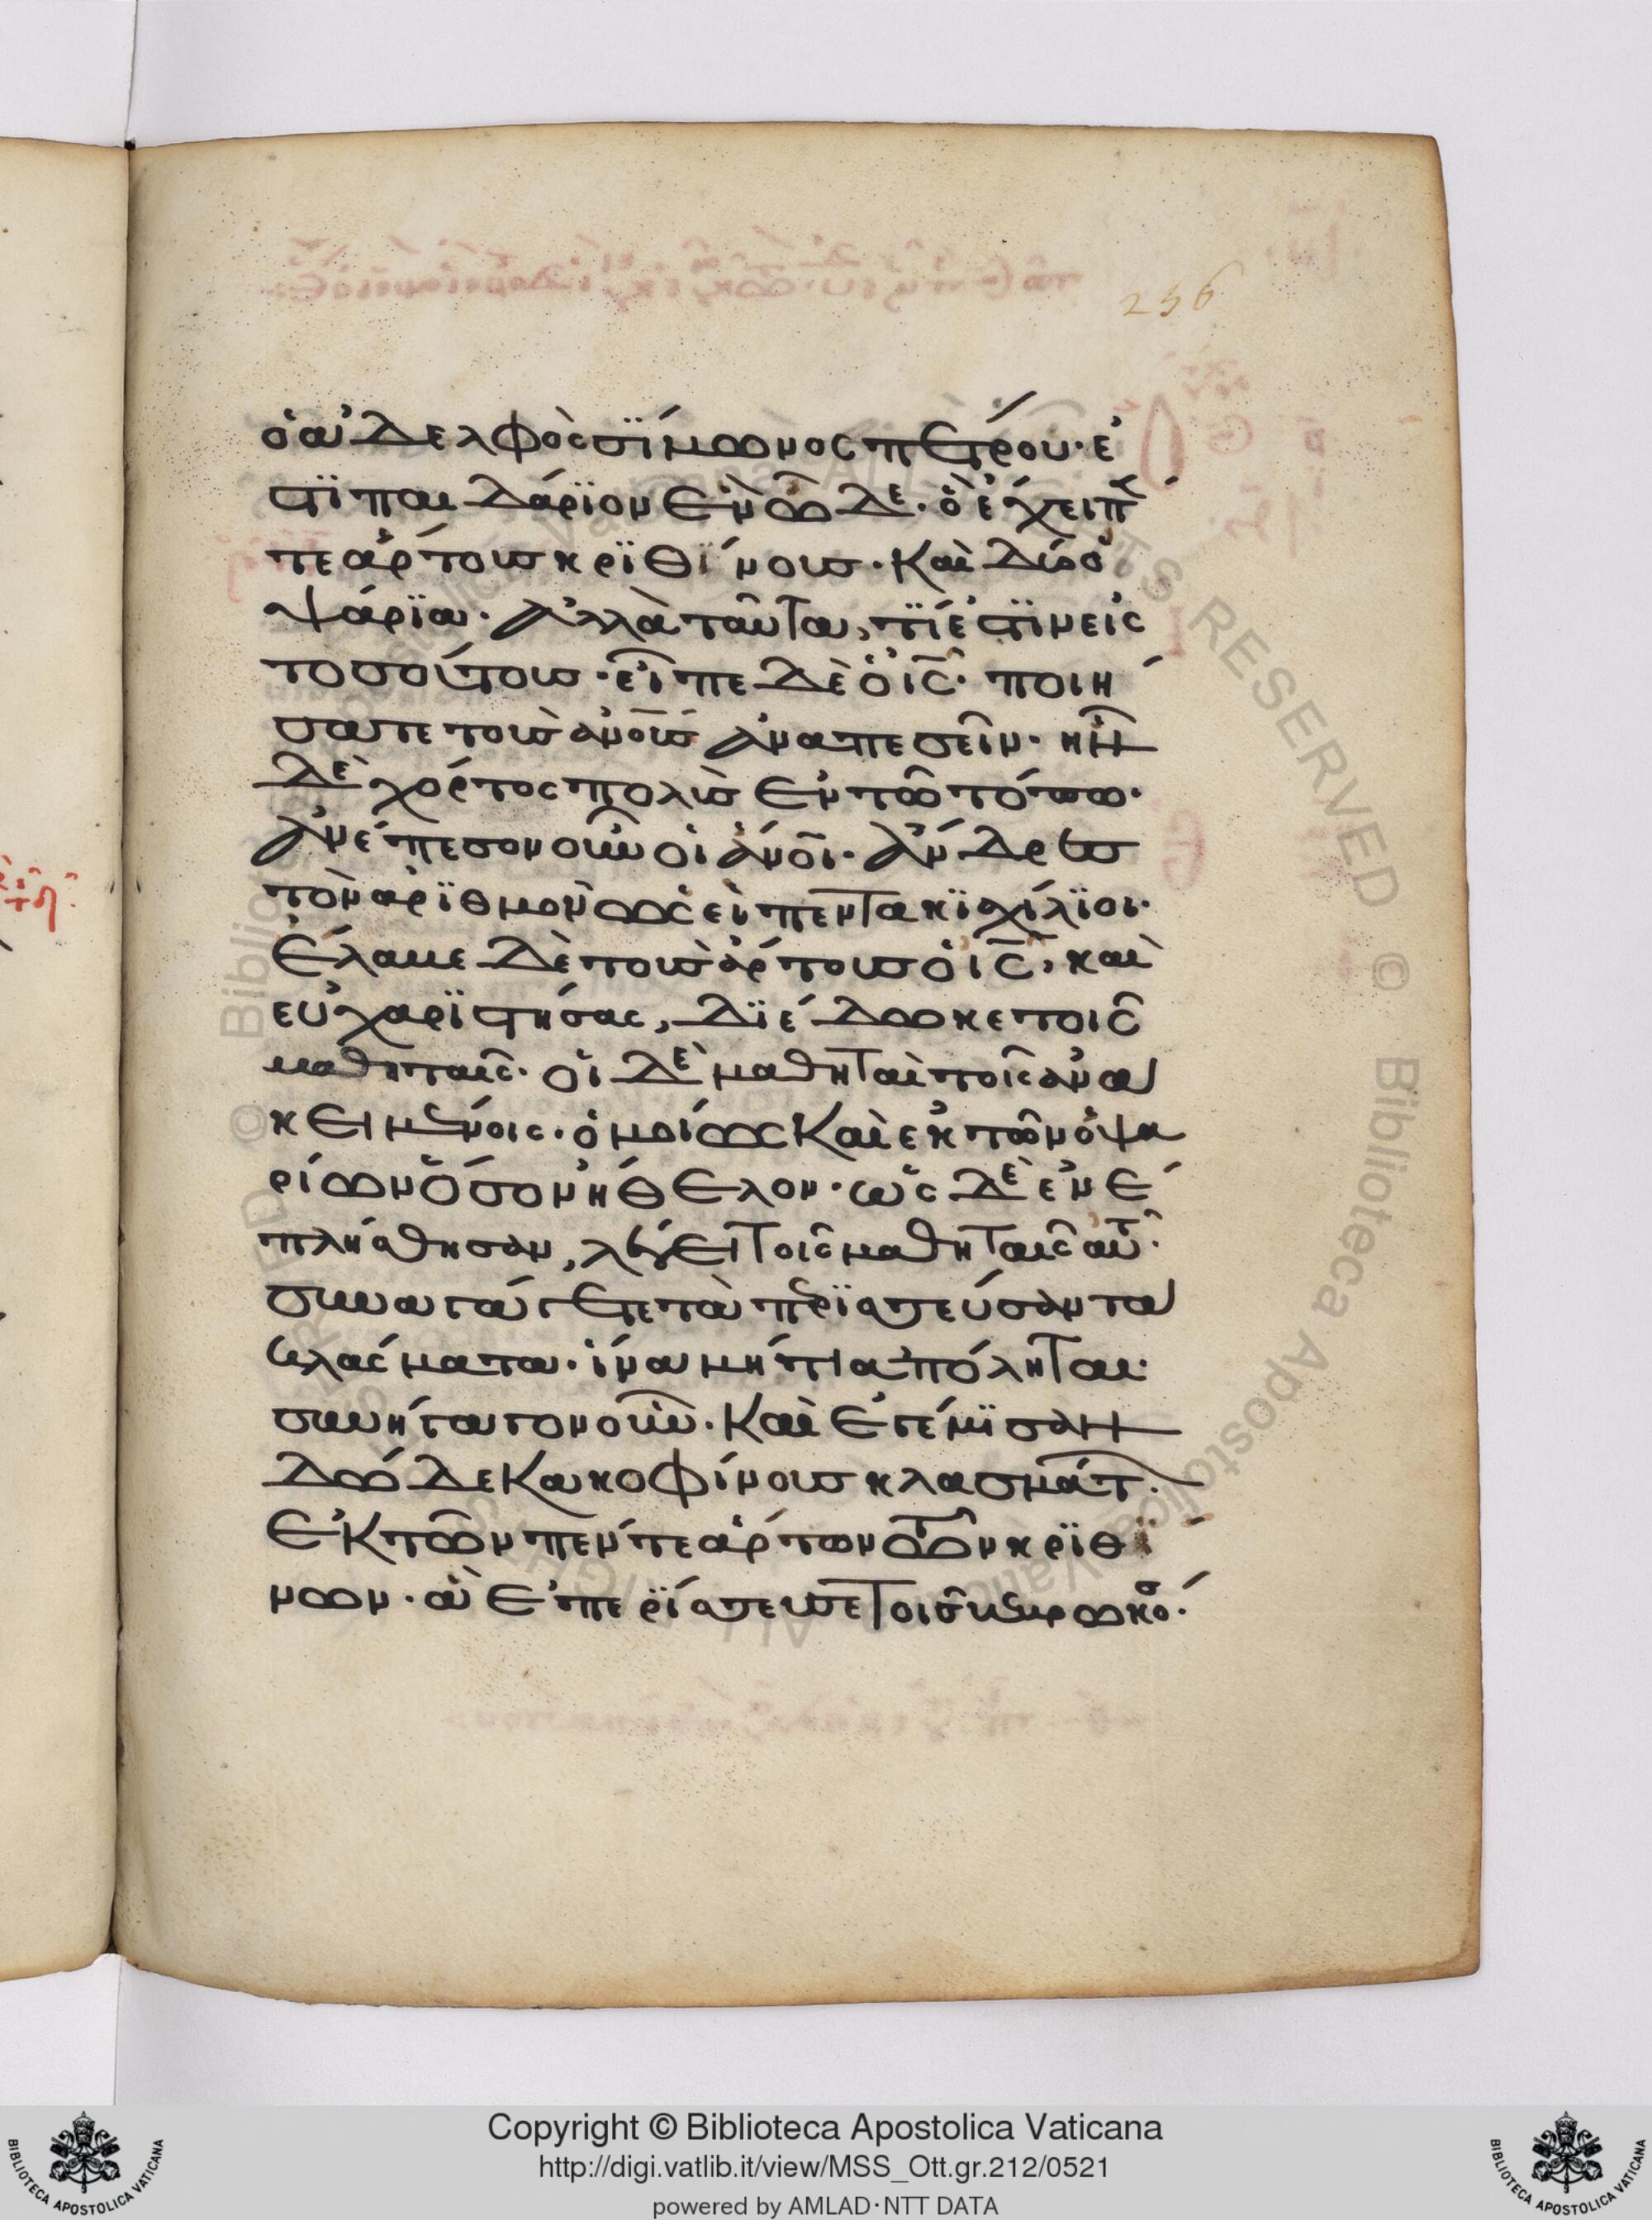 256
ὁ ἀδελφὸς σΐμωνος πέτρου· ἔ
στϊ παιδάρϊον ἓν ὧδε· ὃ ἔχει πέν
τε ἄρτους κρϊθΐνους· καὶ δύο ὀ
ψάρϊα· ἀλλὰ ταῦτα, τΐ ἐστϊν εἰς
τοσούτους· εἶπε δὲ ὁ ις̅· ποιή
σατε τοὺς ἀν̅ους ἀναπεσεῖν· ἦν
δὲ χόρτος πολὺς ἐν τῶ τόπω·
ἀνέπεσον οὖν οἱ ἄν̅οι· ἄνδρες
τὸν ἀρϊθμὸν ὡσεὶ πεντακϊχίλϊοι·
ἔλαβε δὲ τοὺς ἄρτους ὁ ις̅, καὶ
εὐχαρϊστήσας, δϊέδωκε τοῖς
μαθηταῖς· οἱ δὲ μαθηταὶ τοῖς ἀνα
κειμένοις· ὁμοίως καὶ ἐκ τῶν ὀψα
ρίων ὅσον ἤθελον· ὡς δὲ ἐνε
πλήσθησαν, λέγει τοῖς μαθηταῖς αὐτοῦ·
συναγάγετε τὰ περϊσσεύσαντα
κλάσματα· ἵνα μή τι ἀπόληται·
συνήγαγον οὖν· καὶ ἐγέμϊσαν
δώδεκα κοφίνους κλασμάτ·
ἐκ τῶν πέντε ἄρτων τῶν κρϊθΐ
νων· ἃ ἐπερΐσσευσε τοῖς βεβρωκό·
Copyright © Biblioteca Apostolica Vaticana
http://digi.vatlib.it/view/MSS_Ott.gr.212/0521
powered by AMLAD·NTT DATA
BIBLIOTECA APOSTOLICA VATICANA
BIBLIOTECA APOSTOLICA VATICANA